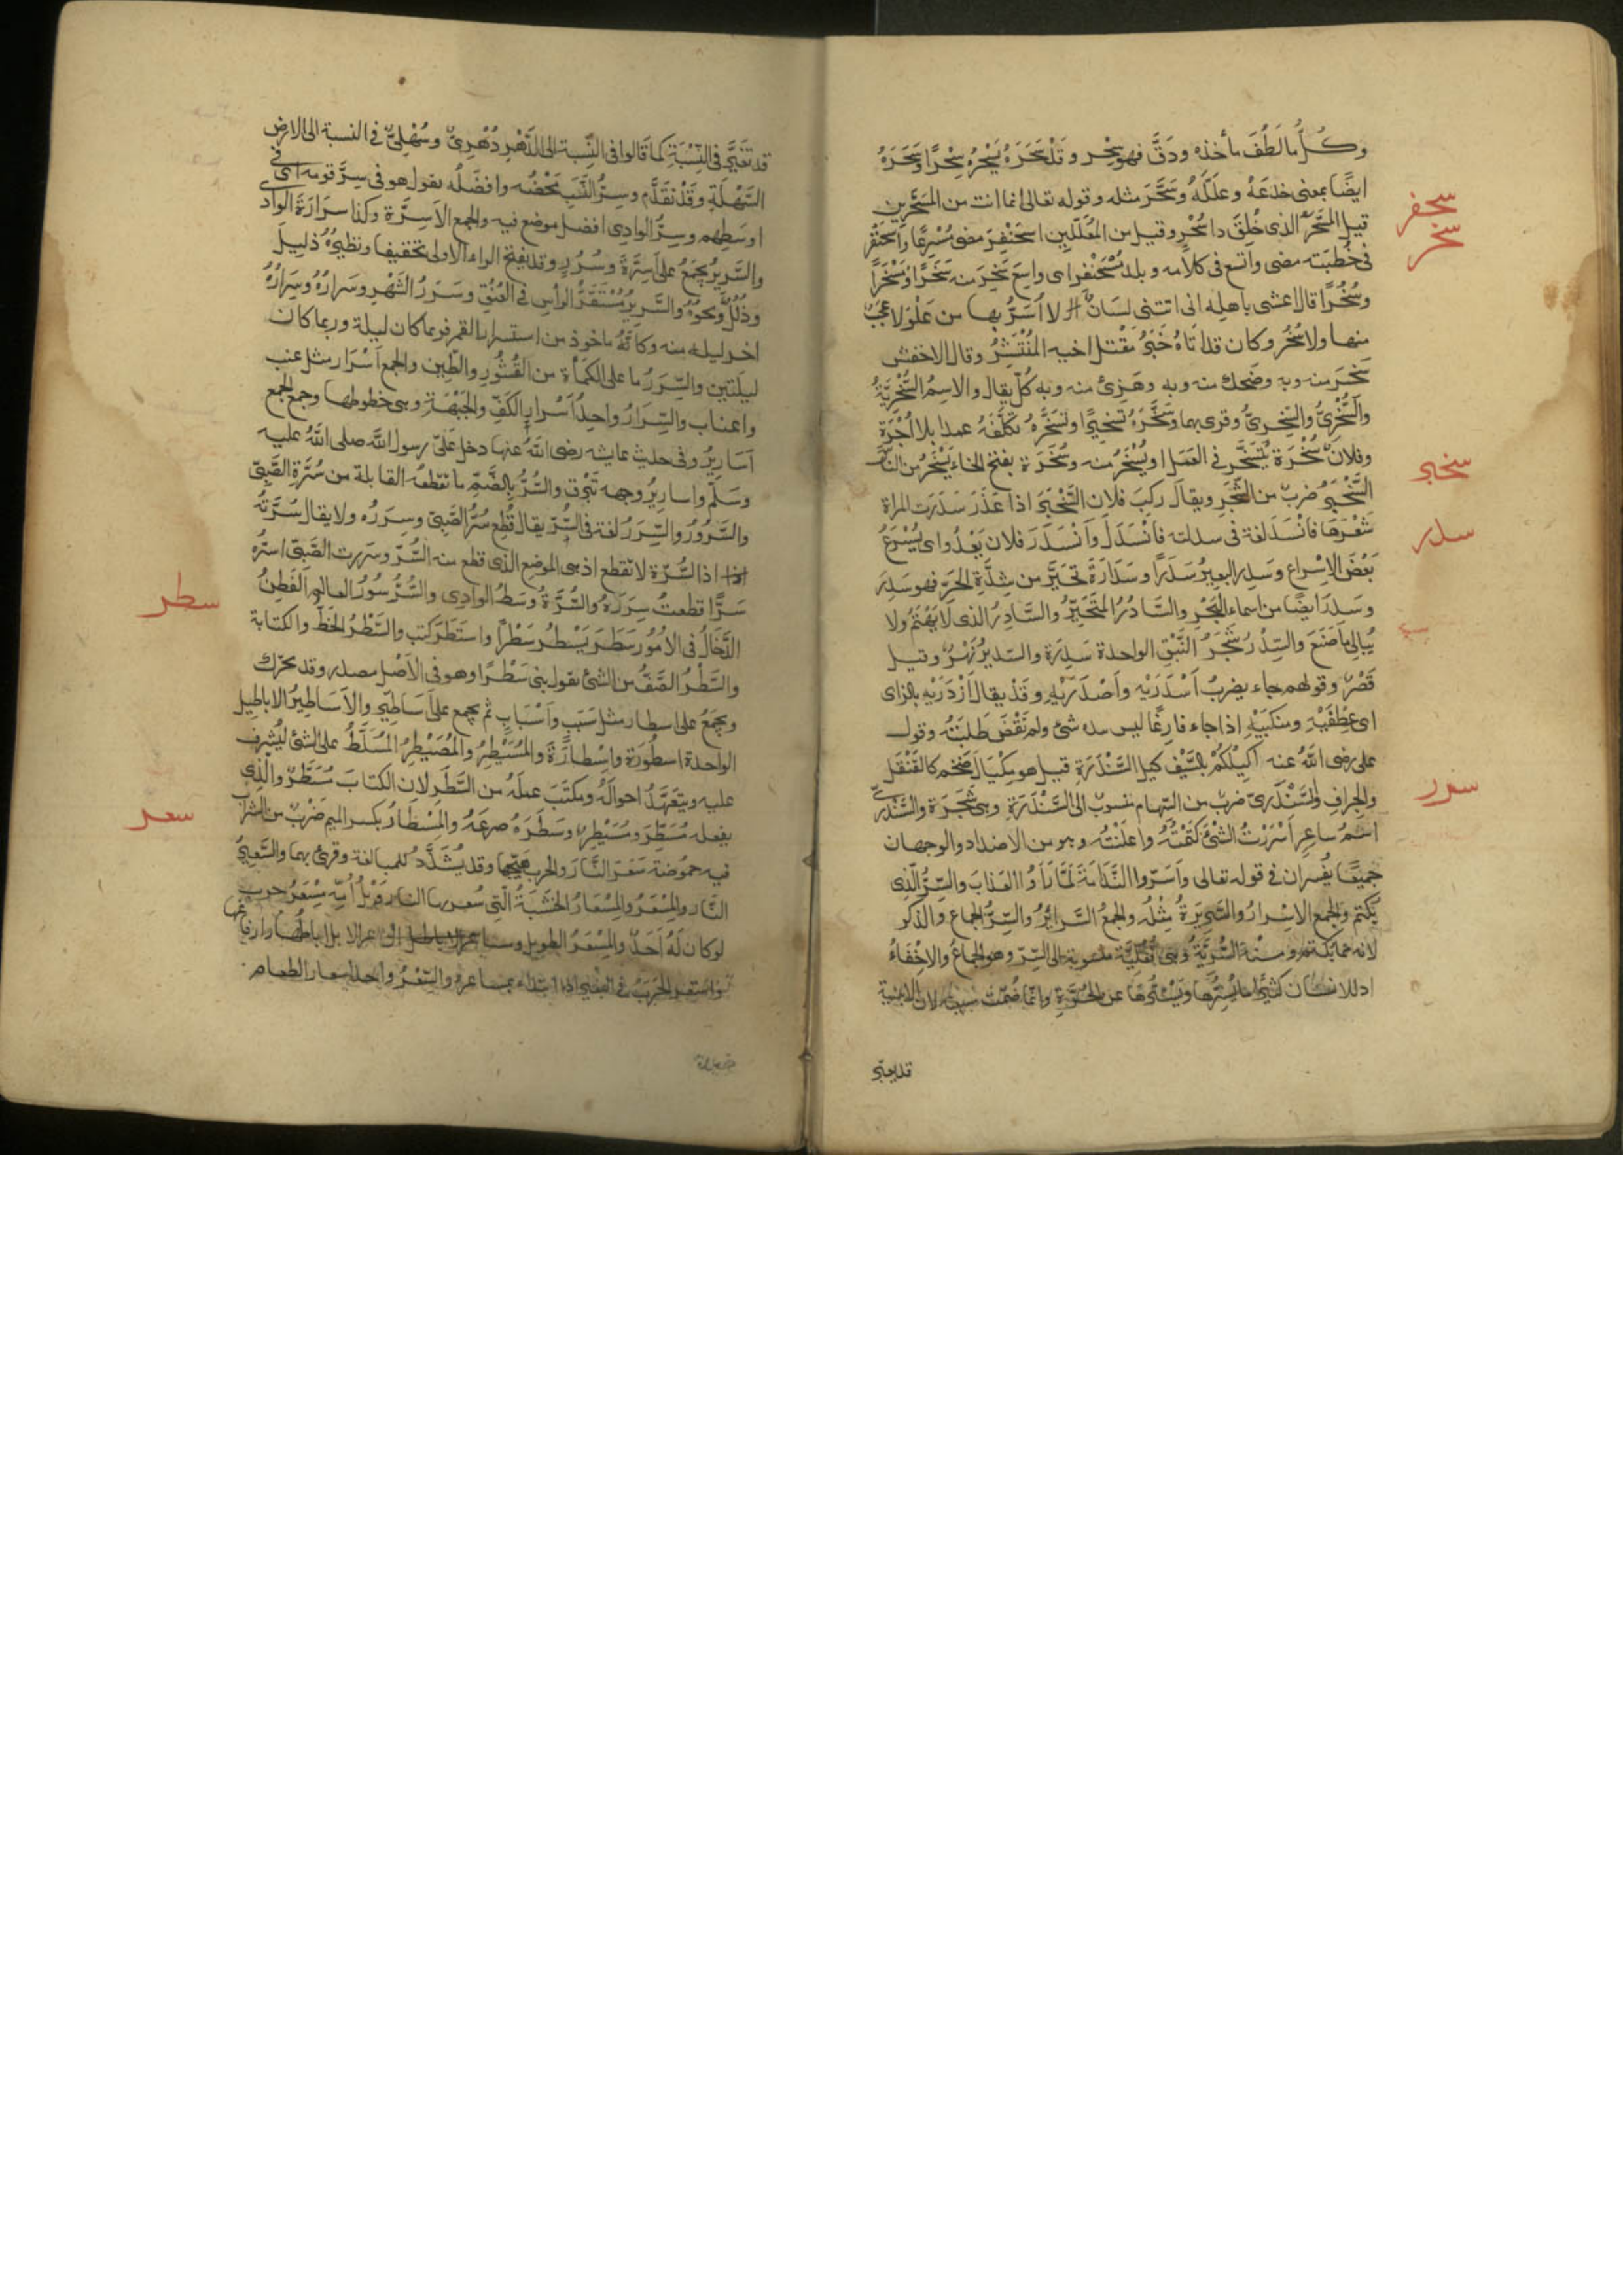 وكُلُّ ما لَطُفَ مأخذه ودَقَّ فهو سِحْر وقد سَحَرَهُ يَسْحَرُهُ سِحْرًا وسَحَرَهُ
ايضًا بمعنى خدعَهُ وعلَّلَهُ وسَحَّرَ مثله وقوله تعالى انما انت من المسَحَّرِين
سحفر
قيل المسَحَّر الذى خُلِقَ ذا سَحْرٍ وقيل من المُعَلَّلِين اسحَنْفَرَ مضى مُسْرِعًا واسحَنْفَر
سخر
فى خُطبَته مضى واتسع فى كلامه وبلد مُسْحَنْفر اى واسِع سَخِرَ منه سَخَرًا وسَخْرًا
وسُخْرًا قال اعشى باهلة انى اتتنى لسَانٌ لا اُسَرُّ بها من عَلْوَ لا عَجَبٌ
منها ولا سَخَر وكان قد اتَاهُ خَبَرُ مَقْتَل اخيه المُنْتَشِرُ وقال الاخفش
سَخِرَ منه وبه وضَحِك منه وبه وهَزِئ منه وبه كُلّ يقال والاسمُ السُّخْرِيَّةُ
والسُّخْرِىُّ والسِّخرىُّ وقرى بهما وسَخَّرَهُ تسخيرًا وتسَخَّرَهُ تكلَّفَهُ عملا بلا اُجْرَة
وفلانٌ سُخْرَة يُتَسَخَّر فى العَمَل او يُسْخَرُ منه وسُخَرَة بفتح الخاء يَسْخَرُ من النَّاس
سخبر
السَّخْبَرُ ضربٌ من الشَّجَرِ ويقال ركبَ فلان السَّخْبَرَ اذا غَدَرَ سَدَرَت المراة
سدر
شَعْرَهَا فانْسَدَرَ لغة فى سدلته فانْسَدَلَ وانْسَدَرَ فلان يَعْدُوا اى يُسْرِعُ
بَعْضَ الاسْراع وسَدِرَ البعيرُ سَدَرًا وسَدَارَةً تحَيَّرَ من شِدَّةِ الحَرِّ فهو سَدِرَ
وسَدِرَ ايضًا من اسماء البَحْرِ والسَّادُرُ المتَحَيِّرُ والسَّادِرُ الذى لا يَهْتَمُّ ولا
يُبالى ما صَنَعَ والسِّدْرُ شَجَرُ النَّبْقِ الواحدة سَدِرَة والسّديرُ نَهْرٌ وقيل
قَصْرٌ وقولهم جاء يضرِبُ اَسْدَرَيْه واَصْدَرَيْهِ وقَدْ يقال اَزْدَرَيْهِ بالزاى
اى عِطْفَيْهِ ومنكبَيْهِ اذا جاء فارِغًا ليس بيده شئ ولم تُقْضَ طَلِبَتُهُ وقول
على رضى الله عنه اَكِيلُكُمْ بالسَّيْف كيل السَّنْدَرَةِ قيل هو مِكْيَالٌ ضَخم كالقَنْقَل
والجِرافِ والسَّنْدَرِىّ ضربٌ من السّهام منسوبٌ الى السَّنْدَرَةِ وهى شَجَرَة والسَّنْدَرِىّ
سرر
اسْمُ شاعِرٍ اَسْرَرْتُ الشَّئ كَتَمْتُهُ واعلَنْتُه وهو من الاضداد والوجهان
جميعًا يُفسَّران فى قوله تعالى واَسَرّوا النَّدامَةَ لمَّا رَاَوُا العَذابَ والسِّرُّ الّذى
يُكتم والجمع الاَسْرارُ والسَّرِيرَةُ مِثْلُه والجمعُ السَّرائرُ والسِّرُّ الجماع والذكر
لانه مما يكتم ومنهُ السُّرِّيَّةُ وهى فُعْلِيَّة منسوبة الى السِّرّ وهو الجماعُ والاخْفاءُ
اذ الانسان كثيرًا ما يُسِرُّها ويَسْتُرُها عن الحُرَّةِ وانّما ضُمّت سينه لان الابنية
قد تغير
قد تغَيَّر فى النِّسْبَةِ كما قالوا فى النِّسبة الى الدَّهْرِ دُهْرِىّ وسُهْلِىّ فى النسبة الى الارض
السَّهْلَةِ وقَدْ تقَدَّم وسِرُّ النَّسَبِ مَحْضُه وافضَلُه يقول هو فى سِرَّ قومه اى فى
اوسَطِهِم وسِرُّ الوادِى افضل موضع فيه والجمع الاَسِرَّة وكذا سرارَةُ الواد
والسَّريرُ يجمَعُ على اَسِرَّة وسُرُرٍ وقد يفتح الراء الاولى تخفيفا ونظيرُهُ ذليل
وذُلَلٌ ونحوُهُ والسَّريرُ مُسْتَقَرُّ الرأس فى العُنُقِ وسَرَرُ الشَّهْرِ وسَرارُهُ وسِرَارُهُ
اخر ليلة منه وكانَّهُ ماخوذ من استسرار القمر فربما كان ليلة وربما كان
ليلتين والسِّرَرُ ما على الكَمأَة من القُشُورِ والطّين والجمع اَسْرَار مثل عنب
واعناب والسِّرَارُ واحِدُ اَسْرارِ الكَفِّ والجَبْهَة وهى خطوطها وجمع الجمع
اَسَارِيرُ وفى حديث عايشه رضى الله عنها دخل عَلَىّ رسول الله صلى الله عليه
وسَلّم واسارِيرُ وجهه تَبْرُق والسُّرُّ بالضَّمّ ما تقطعه القابلة من سُرَّةِ الصَّبِىّ
والسَّرُورُ والسِّرَرُ لغة فى السُّرّ يقال قُطِع سُرُّ الصَّبِىّ وسِرَرُه ولا يقال سُرَّتُهُ
اذا السُّرّة لا تقطع اذ هى الموضع الذى قطع منه السُّرّ وسررت الصَّبِىّ اسُرّه
سَرًّا قطعتُ سِرَرَهُ والسُّرَّةُ وسَطُ الوادِى والسُّرْسُورُ العالم الفَطِنُ
سطر
الدَّخّالُ فى الاُمُور سَطَرَ يَسْطُرُ سَطْرًا واستَطَرَ كتب والسَّطْرُ الخَطّ والكتابة
والسَّطْرُ الصَّفُّ من الشئ يقول بنى سَطْرًا وهو فى الاَصْل مصدر وقد يحرّك
ويجمَعُ على اسطار مثل سَبَبٍ واَسْبَابٍ ثم يجمع على اَسَاطِير والاَسَاطِيرُ الاباطيل
الواحدة اسطُورَة واِسْطارَةً والمُسَيْطِرُ والمُصَيْطِرُ المُسَلّطُ على الشئ ليُشرف
عليه ويتعَهَّدُ احوالَهُ ومكتَبَ عملَهُ من السَّطْرِ لان الكتابَ مُسَطَّرٌ والذى
يفعله مُسَطِّرٌ ومُسَيْطِرٌ وسَطَرَهُ صرعَهُ والمِسْطَارُ بكسر الميم ضَرْبٌ من الشراب
سعر
فيه حموُضة سَعَرَ النَّارَ والحرب هيّجها وقد يُشَدَّدُ للمبالغة وقرئ بهما والسَّعِيرُ
النَّار والمِسْعَرُ والمِسْعَارُ الخشَبَةُ الّتى تُسعر بها النار وَيْلُ اُمِّه مِسْعَرُ حرب
لو كان لَهُ اَحَدٌ والمِسْعَرُ الطويل ومساعر الابل اباطُها وارفاغها
واستعر الجَرَبُ فى البعير اذا ابتداء بمساعره والسِّعْرُ واحد اسعار الطعام